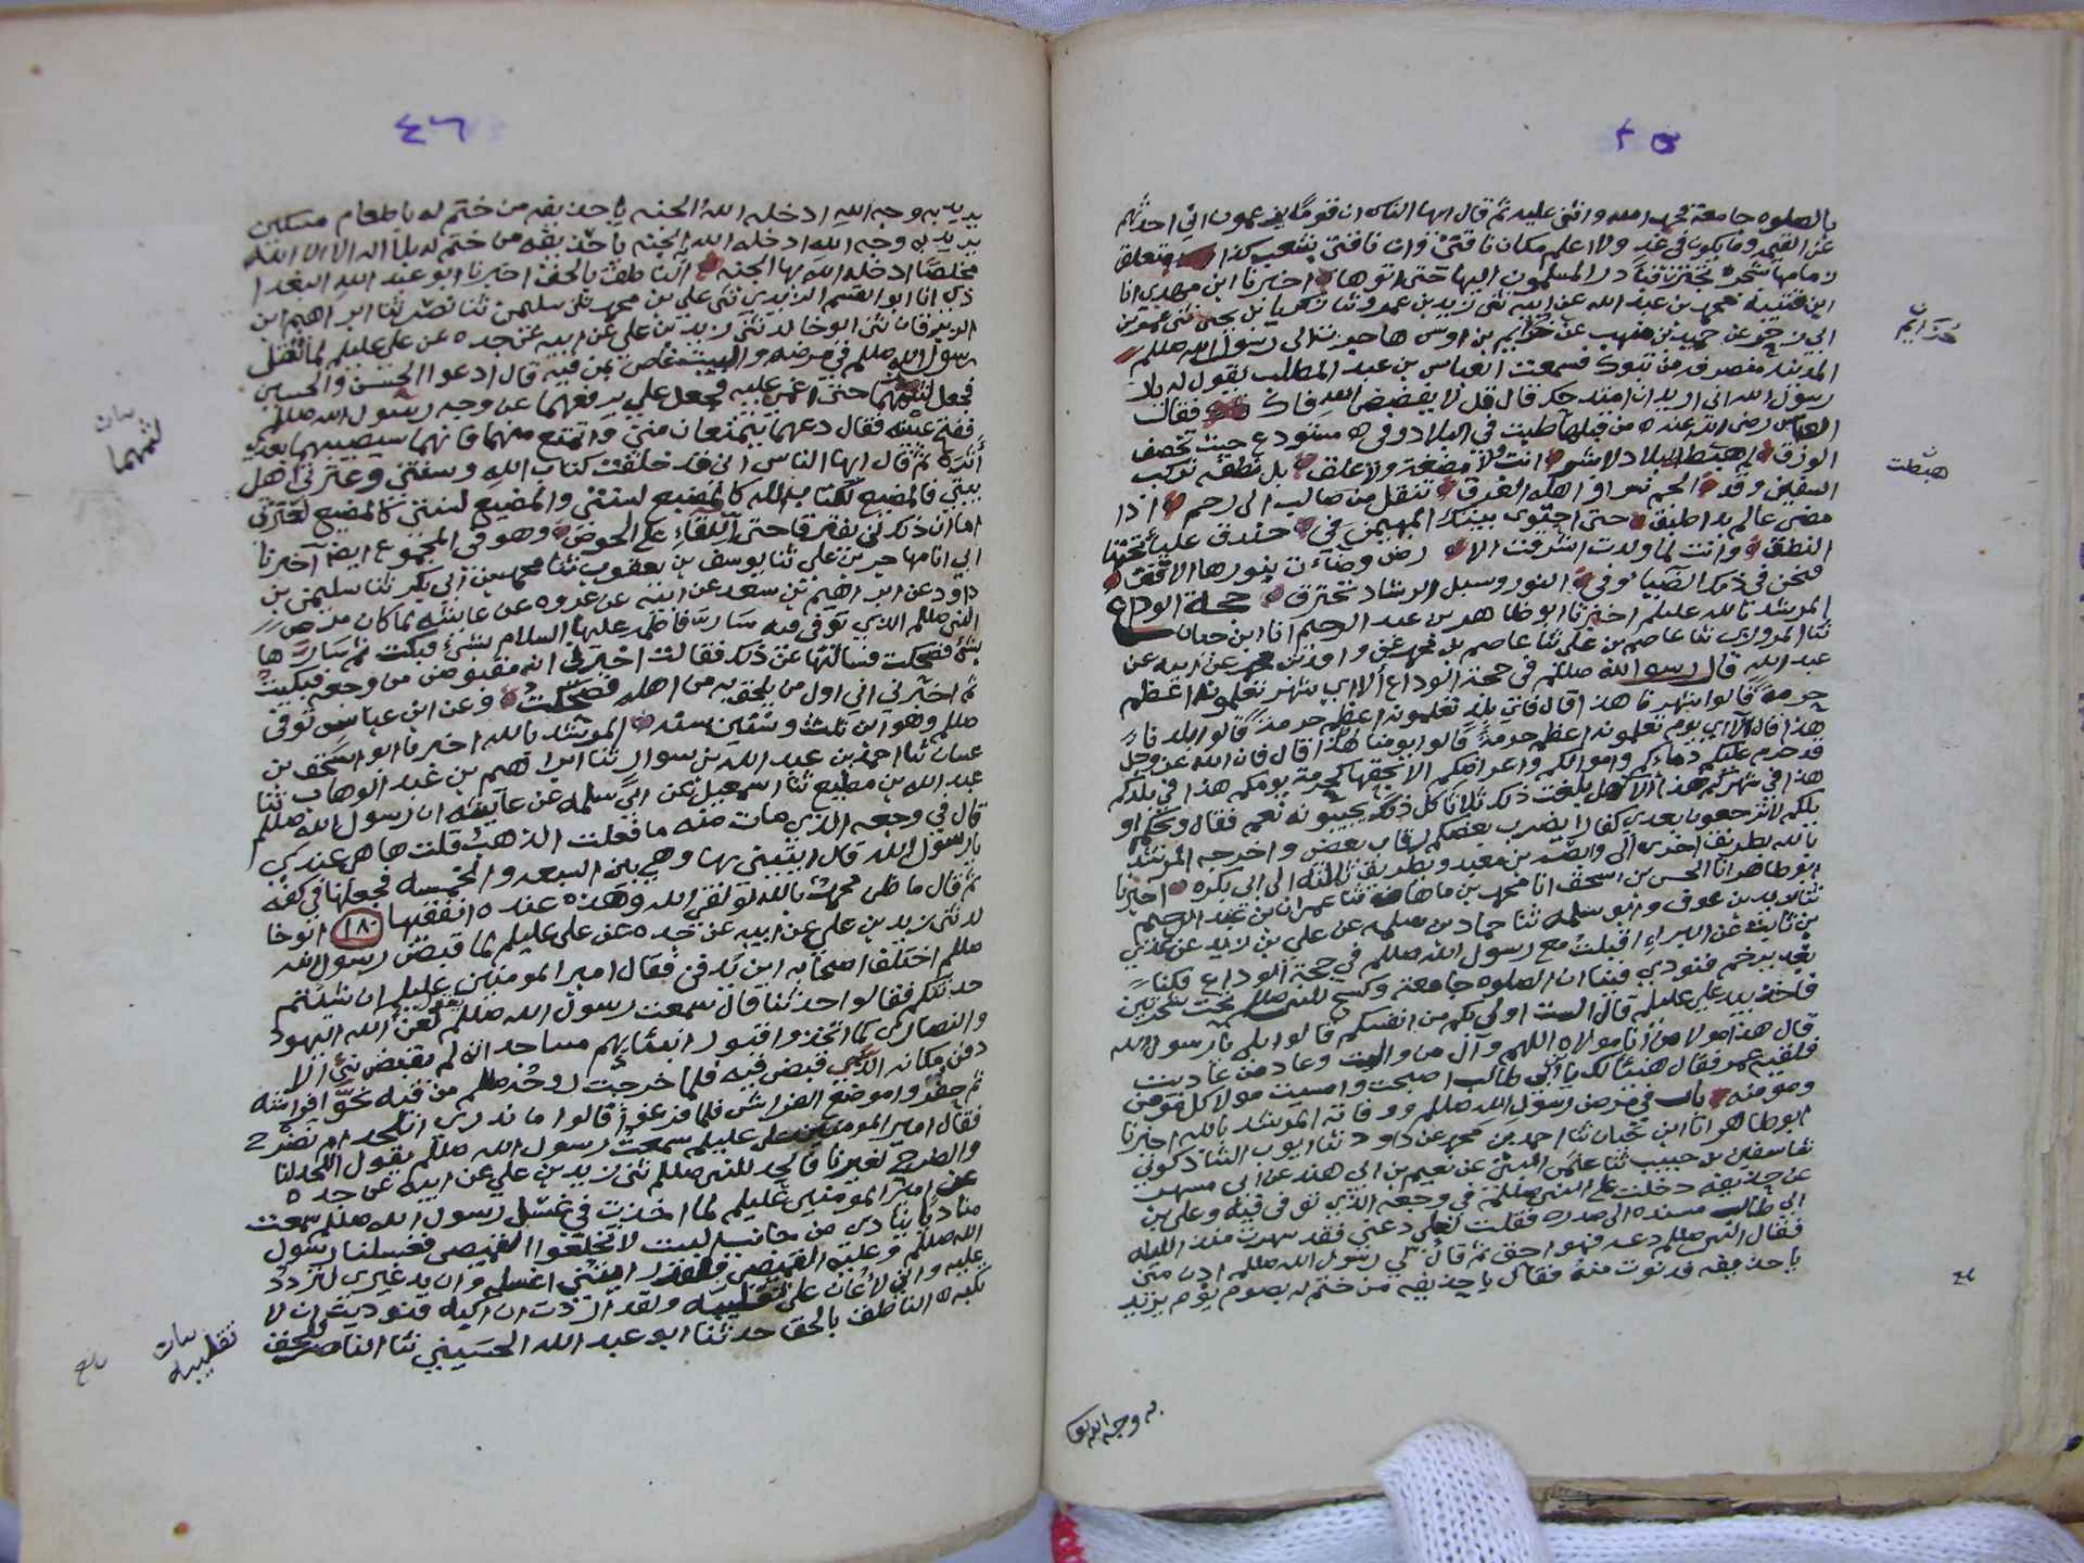 ٤٥
بالصلوه جامعة فحمد الله واثنى عليه ثم قال ايها الناس ان قوما يزعمون اني احدثهم
عن الغيب وما يكون في غد ولا اعلم مكان ناقتي وان ناقتي بشعب كذا متعلق
زمامها بشجرة فابتدر المسلمون اليها حتى اتوها اخبرنا ابن مهدي انا
ابن قتيبة محمد بن عبد الله عن ابيه ثنى زيد بن عمرو ثنا زكريا بن يحيى ثنى عم
ابي زحر عن حميد بن منهب عن خزيم بن اوس هاجرت الى رسول الله صللم
المدينه منصرفه من تبوك فسمعت العباس بن عبد المطلب يقول له يا
رسول الله اني اريد ان امتدحك قال قل لا يفضض الله فاك فقال
العباس رضي الله عنه من قبلها طبت في الظلال وفي مستودع حيث يخصف
الورق ثم هبطت البلاد لا بشر انت ولا مضغة ولا علق بل نطفه تركب
السفين وقد الجم نسرا واهله الغرق تنقل من صالب الى رحم اذا
مضى عالم بدا طبق حتى احتوى بيتك المهيمن من خندف علياء تحتها
النطق وانت لما ولدت اشرقت الارض وضاءت بنورها الافق
فنحن في ذلك الضياء وفي النور وسبل الرشاد نخترق حجة الوداع
المرشد بالله عليلم اخبرنا ابو طاهر بن عبد الرحيم انا ابن حيان
ثنا المروزي ثنا عاصم بن علي ثنا عاصم بن محمد عن واقد بن محمد عن ابيه عن
عبد الله قال رسول الله صللم في حجة الوداع الا اي شهر تعلمونه اعظم
حرمة قالوا شهرنا هذا قال فاي بلد تعلمونه اعظم حرمة قالوا بلدنا
هذا قال الا اي يوم تعلمونه اعظم حرمة قالوا يومنا هذا قال فان الله عز وجل
قد حرم عليكم دماءكم واموالكم واعراضكم الا بحقها كحرمة يومكم هذا في بلدكم
هذا في شهركم هذا الا هل بلغت ذلك ثلاثا كل ذلك يجيبونه نعم فقال ويحكم او
ويلكم لا ترجعون بعدي كفارا يضرب بعضكم رقاب بعض واخرجه المرشد
بالله بطريق اخرى الى وابصة بن معبد وبطريق ثالثة الى ابي بكره اخبرنا
ابو طاهر انا الحسن بن اسحق انا محمد بن ماهان ثنا عمران بن عبد الرحيم
ثنا زيد بن عوف وابو سلمه ثنا حماد بن سلمه عن علي بن زيد عن عدي
بن ثابت عن البراء اقبلت مع رسول الله صللم في حجة الوداع فكنا
بغدير خم فنودي فينا ان الصلوه جامعة وكسح للنبي صللم تحت شجرتين
فاخذ بيد علي عليلم قال الست اولى بكم من انفسكم قالوا بلى يا رسول الله
قال هذا مولا من انا مولاه اللهم وآل من واليت وعاد من عاديت
فلقيه عمر فقال هنيئا لك يا ابن ابي طالب اصبحت وامسيت مولا كل مؤمن
ومؤمنه باب في مرض رسول الله صللم ووفاته المرشد بالله اخبرنا
ابو طاهر انا ابن حيان ثنا احمد بن محمد عن داود ثنا ايوب الشاذكوني
ثنا سفين بن حبيب ثنا علي الليثي عن نعيم بن ابي هند عن ابي مسهر
عن حذيفه دخلت على النبي صللم في وجعه الذي توفى فيه وعلي بن
ابي طالب مسنده الى صدره فقلت لعلي دعني فقد سهرت منذ الليله
فقال النبي صللم دعه فهو احق ثم قال لي رسول الله صللم ادن مني
يا حذيفه فدنوت منه فقال يا حذيفه من ختم له بصوم يوم يريد
به وجه الله تعا
هبطت
٤٦
يريد به وجه الله ادخله الله الجنه يا حذيفه من ختم له باطعام مسكين
يريد به وجه الله ادخله الله الجنه يا حذيفه من ختم له بلا اله الا الله
مخلصا ادخله الله بها الجنه الناطق بالحق اخبرنا ابو عبد الله البغدا
دي انا ابو القسم الزيدي ثنى علي بن محمد ثنى سليمن ثنا نصر ثنا ابراهيم ابن
الزبرقان ثنى ابو خالد ثنى زيد بن علي عن ابيه عن جده عن علي عليلم لما ثقل
رسول الله صللم في مرضه والبيت غاص بمن فيه قال ادعوا الحسن والحسين
فجعل يلثمهما حتى اغمي عليه فجعل علي يرفعهما عن وجه رسول الله صللم
ففتح عينيه فقال دعهما يتمتعان مني واتمتع منهما فانهما سيصيبهما بعدي
أثره ثم قال ايها الناس اني قد خلفت كتاب الله وسنتي وعترتي اهل
بيتي فالمضيع لكتاب الله كالمضيع لسنتي والمضيع لسنتي كالمضيع لعترتي
اما ان ذلك لن يفترقا حتى اللقاء على الحوض وهو في المجموع ايضا اخبرنا
ابي انا مهاجر بن علي ثنا يوسف بن يعقوب ثنا محمد بن ابي بكر ثنا سليمن بن
داود عن ابراهيم بن سعد عن ابيه عن عروه عن عائشه لما كان مرض
النبي صللم الذي توفى فيه سارّ فاطمه عليها السلام بشيء فبكت ثم سارّها
بشي فضحكت فسالتها عن ذلك فقالت اخبرني انه مقبوض من وجعه فبكيت
ثم اخبرني اني اول من يلحق به من اهله فضحكت وعن ابن عباس توفى
صللم وهو ابن ثلث وستين سنه المرشد بالله اخبرنا ابو اسحق بن
غسان ثنا احمد بن عبد الله بن سوار ثنا ابراهيم بن عبد الوهاب ثنا
عبد الله بن مطيع ثنا اسمعيل عن ابي سلمه عن عايشه ان رسول الله صللم
قال في وجعه الذي مات منه ما فعلت الذهب قلت ها هي عندي
يا رسول الله قال ايتيني بها وهي بين السبعه والخمسه فجعلها في كفه
ثم قال ما ظن محمد بالله لو لقي الله وهذه عنده انفقيها ١٨٠ ابو خا
لد ثنى زيد بن علي عن ابيه عن جده عن علي عليلم لما قبض رسول الله
صللم اختلف اصحابه اين يدفن فقال امير المومنين عليلم ان شيتم
حدثتكم فقالوا حدثنا قال سمعت رسول الله صللم يقول لعن الله اليهود
والنصارى كما اتخذوا قبور انبيائهم مساجد انه لم يقبض نبي الا
دفن مكانه الذي قبض فيه فلما خرجت روحه صللم من فيه نحوا فراشه
ثم حفروا موضع الفراش فلما فرغوا قالوا ما ندري انلحد ام نضرح
فقال امير المومنين علي عليلم سمعت رسول الله صللم يقول اللحد لنا
والضرح لغيرنا فالحد للنبي صللم ثنى زيد بن علي عن ابيه عن جده
عن امير المومنين عليلم لما اخذت في غسل رسول الله صللم سمعت
مناديا ينادي من جانب البيت لا تخلعوا القميص فغسلنا رسول
الله صللم وعليه القميص فلقد رايتني اغسله وان يد غيري لتردد
عليه واني لأعان على تقليبه ولقد اردت ان اكبه فنوديت ان لا
تكبه الناطق بالحق حدثنا ابو عبد الله الحسيني ثنا الناصر للحق
بيان
لثمهما
بيان
تقليبه